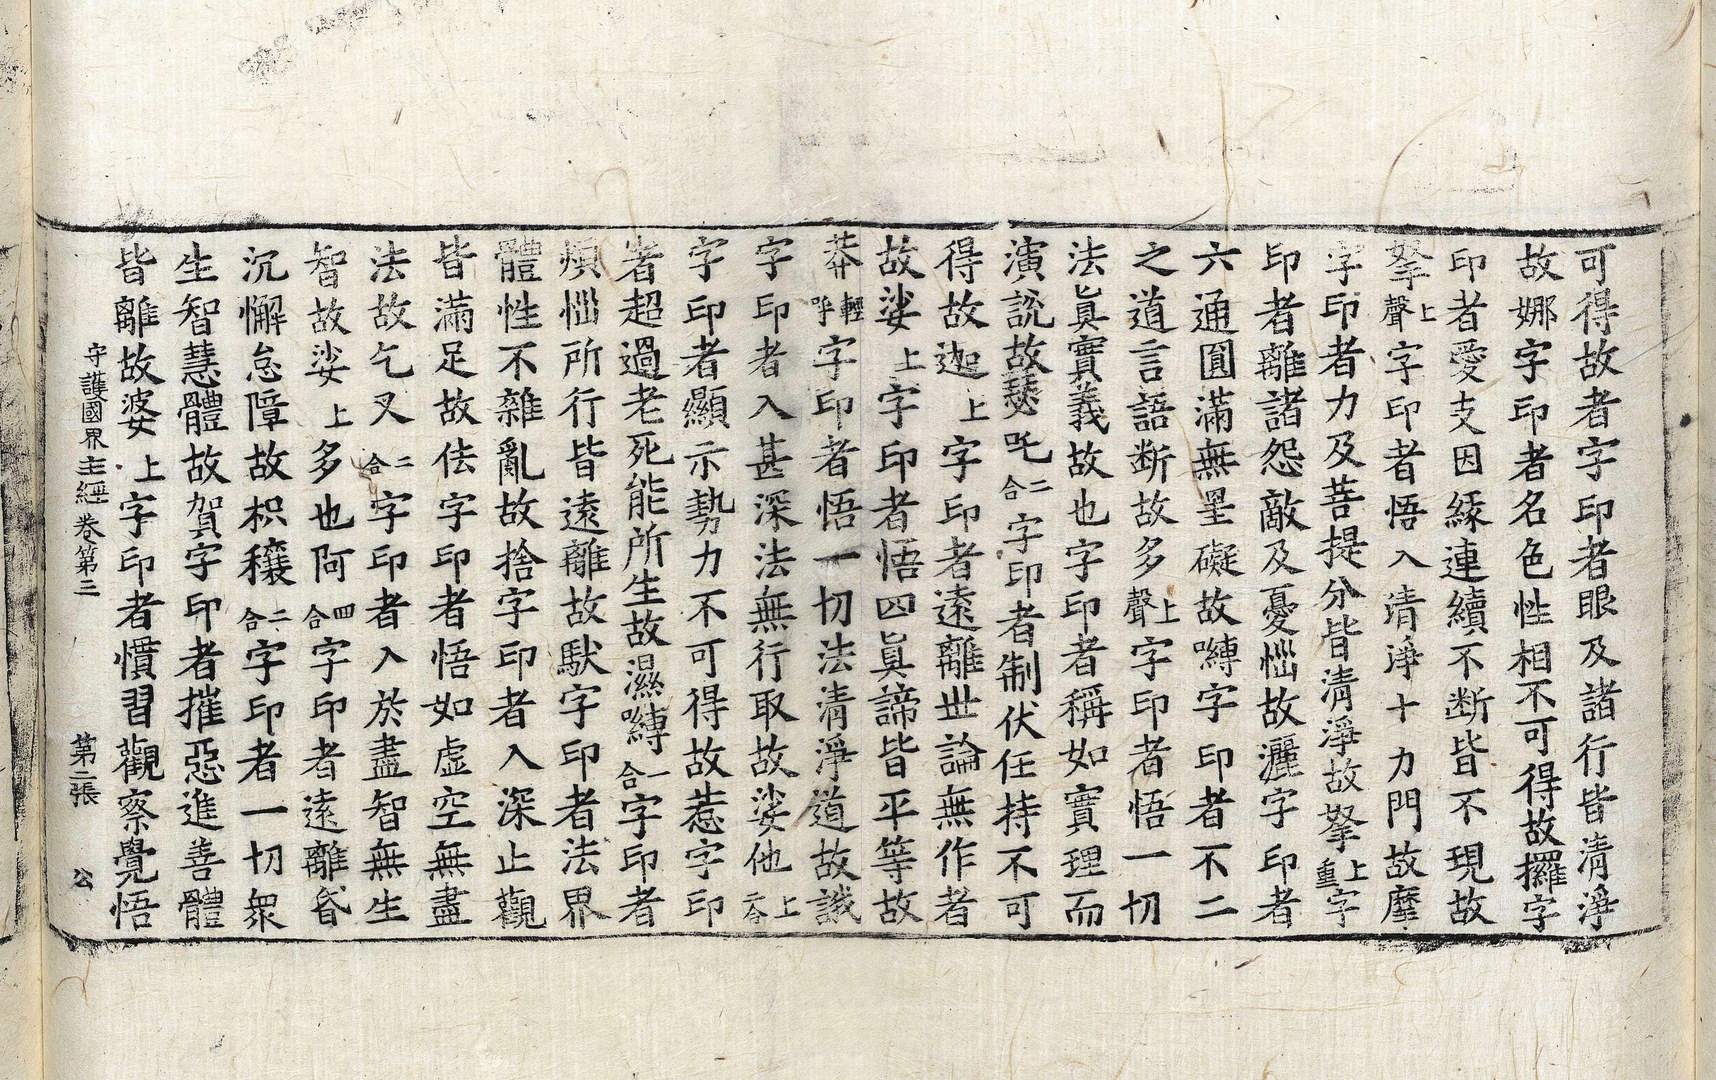 可得故者字印者眼及諸行皆清淨
故娜字印者名色性相不可得故攞字
印者愛支因緣連續不斷皆不現故
拏上聲字印者悟入清淨十力門故麼
字印者力及菩提分皆清淨故拏上重字
印者離諸怨敵及憂惱故灑字印者
六通圓滿無罣礙故嚩字印者不二
之道言語断故多上聲字印者悟一切
法真實義故也字印者稱如實理而
演說故瑟吒二合字印者制伏任持不可
得故迦上字印者遠離世論無作者
故娑上字印者悟四真諦皆平等故
莽輕呼字印者悟一切法清淨道故誐
字印者入甚深法無行取故娑他上二合
字印者顯示勢力不可得故惹字印
者超過老死能所生故濕嚩二合字印者
煩惱所行皆遠離故馱字印者法界
體性不雜亂故捨字印者入深止觀
皆滿足故佉字印者悟如虛空無盡
法故乞叉二合字印者入於盡智無生
智故娑上多也阿四合字印者遠離昏
沉懈怠障故枳穰二合字印者一切衆
生智慧體故賀字印者摧惡進善體
皆離故婆上字印者慣習觀察覺悟
守護國界主經卷第三 第二張 公